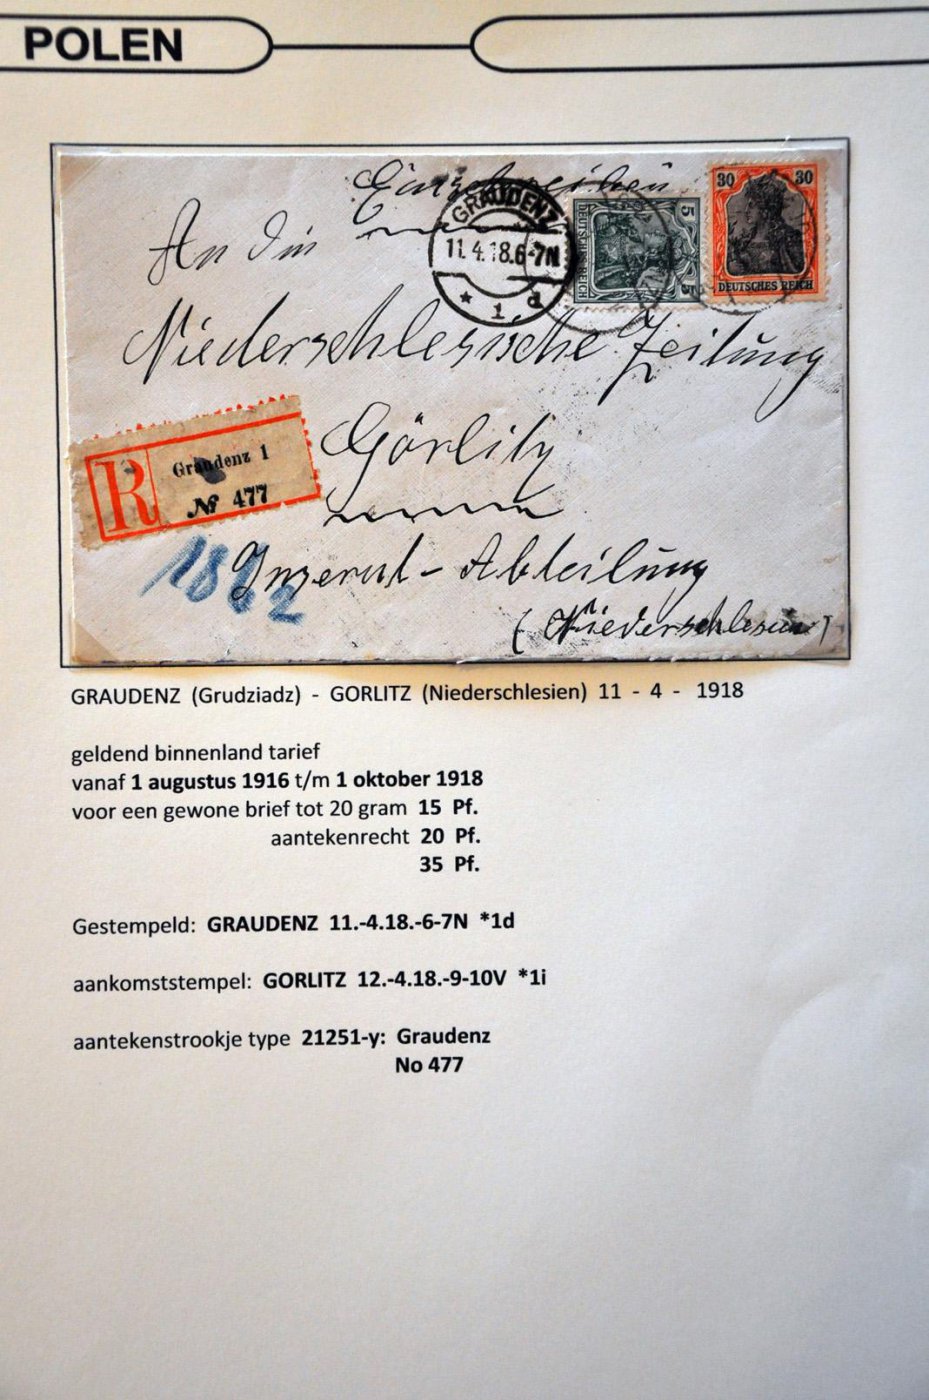 POLEN
Einschreiben
GRAUDENZ
11.4.18.6-7N
* 1 d
5
5
DEUTSCHES REICH
30 30
DEUTSCHES REICH
An die
Niederschlesische Zeitung
Görlitz
R
Graudenz 1
№ 477
Inserat-Abteilung
(Niederschlesien)
GRAUDENZ (Grudziadz) - GORLITZ (Niederschlesien) 11 - 4 - 1918
geldend binnenland tarief
vanaf 1 augustus 1916 t/m 1 oktober 1918
voor een gewone brief tot 20 gram 15 Pf.
aantekenrecht 20 Pf.
35 Pf.
Gestempeld: GRAUDENZ 11.-4.18.-6-7N *1d
aankomststempel: GORLITZ 12.-4.18.-9-10V *1i
aantekenstrookje type 21251-y: Graudenz
No 477